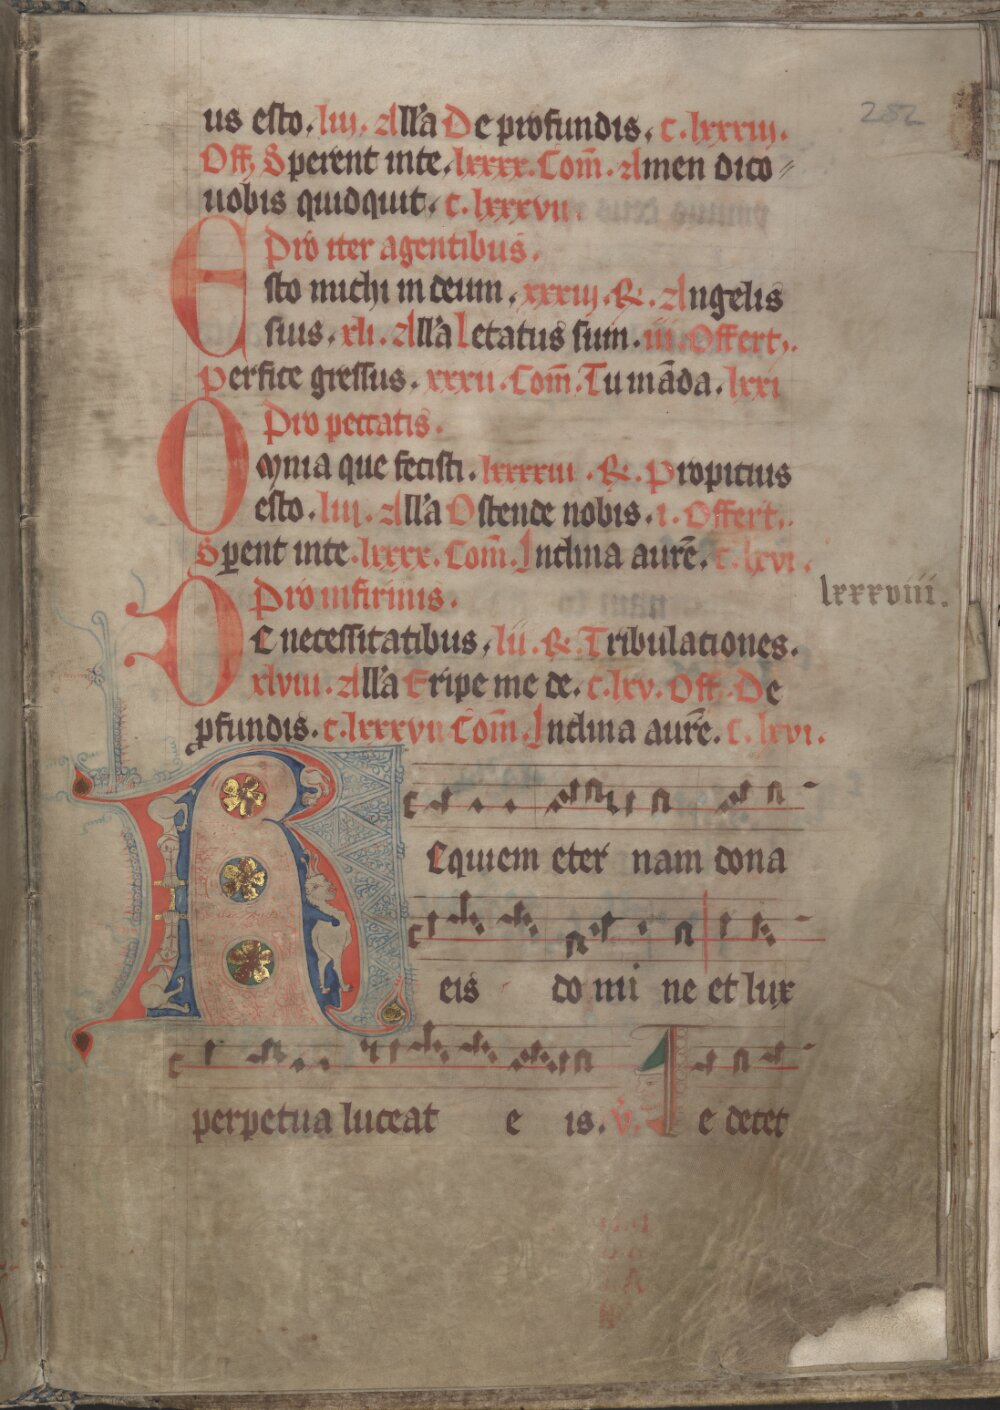 252
us esto. liii. All'a De profundis. c. lxxxiii.
Off. Sperent inte. lxxxx. Com̄. Amen dico
uobis quidquit. c. lxxxvii.
Pro iter agentibus.
Esto michi in deum. xxxiiij. R. Angelis
suis. xli. All'a Letatus sum. iii. Offert.
Perfice gressus. xxxii. Com̄. Tu māda. lxxi
Pro peccatis.
Omnia que fecisti. lxxxxiii. R. Propicius
esto. liii. All'a Ostende nobis. i. Offert.
Sꝑent inte. lxxxx. Com̄. Inclina aurē. c. lxvi.
Pro infirmis.
lxxxviii.
De necessitatibus. lii. R. Tribulationes.
xlviii. All'a Eripe me de. c. lxv. Off. De
ꝓfundis. c. lxxxvii Com̄. Inclina aurē. c. lxvi.
Requiem eter nam dona
eis do mi ne et lux
perpetua luceat e is. V. Te decet